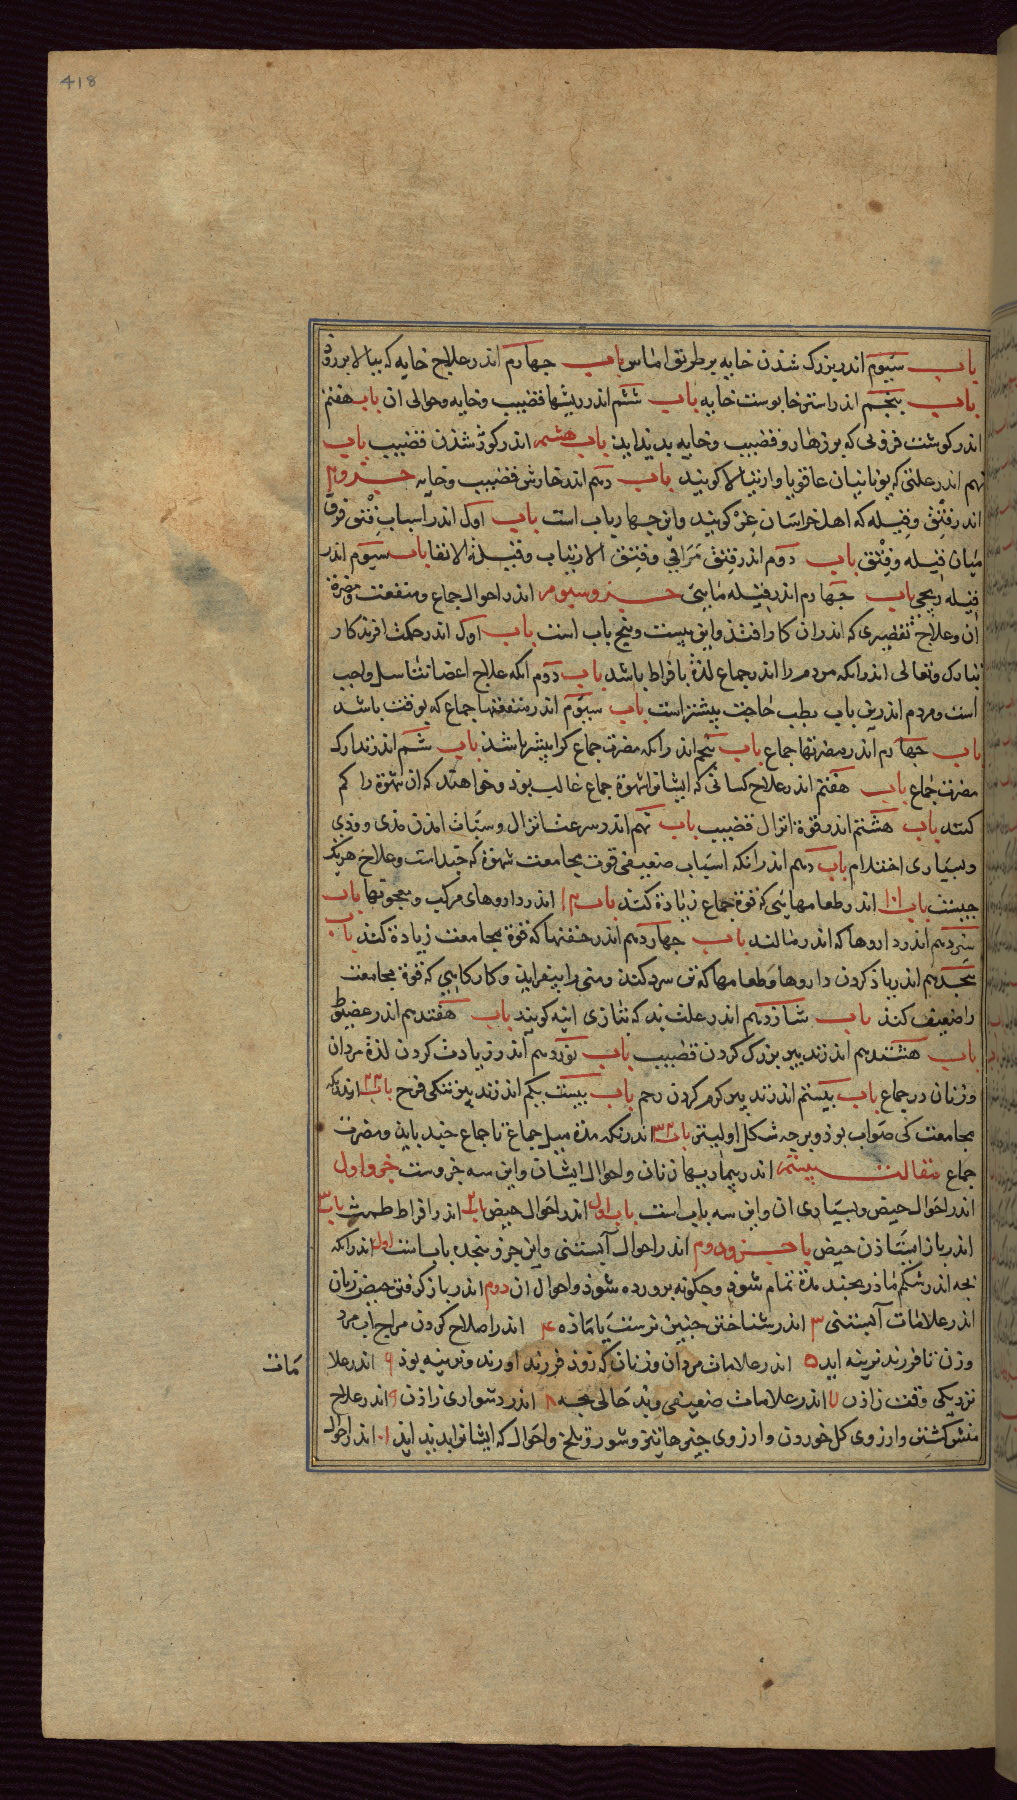 418
باب سیوم اندر بزرک شدن خایه بر طریق اماس باب جهارم اندر علاج خایه که ببالا بررود
باب پنجم اندر استرخا بوست خایه باب ششم اندر ریشها قضیب و خایه و حوالی ان باب هفتم
اندر کوشت فزونی که بر زهار و قضیب و خایه بدید اید باب هشتم اندر کوژ شدن قضیب باب
نهم اندر علتی که یونانیان کویند باب دهم اندر خارش قضیب و خایه جزو دوم
اندر فتق و قیله که اهل خراسان غر کویند و این جهار باب است باب اول اندر اسباب فتق فرق
میان قیله و فتق باب دوم اندر فتق مراقی و فتق الاربتاب و قیلة الانقا باب سیوم اندر
قیله ریحی باب جهارم اندر قیله مایی جزو سیوم اندر احوال جماع و منفعت و مضرة
ان و علاج تقصیری که اندران کار افتد و این بیست و پنج باب است باب اول اندر حکمت افریدکار
تبارک و تعالی اندر انکه مردم را اندر جماع لذة بافراط باشد باب دوم انکه علاج اعضا تناسل واجب
است و مردم اندرین باب بطب حاجت بیشتر است باب سیوم اندر منفعتها جماع که بوقت باشد
باب جهارم اندر مضرتها جماع باب پنجم اندر انکه مضرت جماع کرا بیشتر باشد باب ششم اندر تدارک
مضرت جماع باب هفتم اندر علاج کسانی که ایشانرا شهوة جماع غالب بود و خواهند که ان شهوة را کم
کنند باب هشتم اندر قوة انزال قضیب باب نهم اندر سرعت انزال و سبات امدن مذی و ودی
و بسیاری احتلام باب دهم اندر انکه اسباب ضعیفی قوت مجامعت شهوة که جند است و علاج هریک
جیست باب ۱۱ اندر طعامهایی که قوة جماع زیادة کند باب ۱۲ اندر داروهای مرکب و معجونها باب
سیزدهم اندر داروها که اندر مالند باب جهاردهم اندر حقنها که قوة مجامعت زیادة کند باب
اندر یاذ کردن داروها و طعامها که تن سرد کند و منی را بیفزاید و کارکایی که قوة مجامعت
را ضعیف کند باب شازدهم اندر علت بد که بتازی ابنه کویند باب هفتدهم اندر عضیوط
باب هشتدهم اندر تدبیر بزرک کردن قضیب باب نوزدهم اندر زیادت کردن لذة مردان
و زنان در جماع باب بیستم اندر تدبیر کرم کردن رحم باب بیست یکم اندر تدبیر تنکی فرج باب ۲۲ اندر انکه
مجامعت کی صواب بود و بر جه شکل اولیتر باب ۲۳ اندر انکه مدة میل جماع تا جماع جند باید و مضرت
جماع مقالت بیستم اندر بیماریها زنان و احوال ایشان و این سه جزوست جزو اول
اندر احوال حیض و بسیاری ان و این سه باب است باب اول اندر احوال حیض باب ۲ اندر افراط طمث باب ۳
اندر باز ایستادن حیض یا جزو دوم اندر احوال آبستنی و این جزو پنجده باب است اول اندر انکه
بجه اندر شکم ماذر بجند مدة تمام شود و جکونه برورده شود و احوال ان دوم اندر باز کرفتن حیض زنان
اندر علامات آبستنی ۳ اندر شناختن جنین نرست یا ماذه ۴ اندر اصلاح کردن مزاج اب مرد
و زن تا فرزند نرینه اید ۵ اندر علامات مردان و زنان که زود فرزند اورند و نرینه بود ۶ اندر علا
مات
نزدیکی وقت زاذن ۷ اندر علامات ضعیفی و بد حالی بجه ۸ اندر دشواری زاذن ۹ اندر علاج
منش کشتن و ارزوی کل خوردن و ارزوی جیزهاء ترش و شور و تلخ و احوال که ایشانرا بدید اید ۱۰ اندر احوال